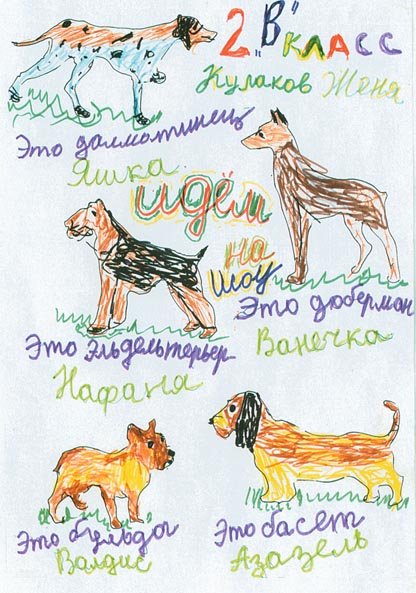 2 "В" КЛАСС
Кулаков Женя
Это далматинец
Яшка
идём
на
шоу
Это доберман
Ванечка
Это эльдельтерьер
Нафаня
Это бульдог
Валдис
Это басет
Азазель